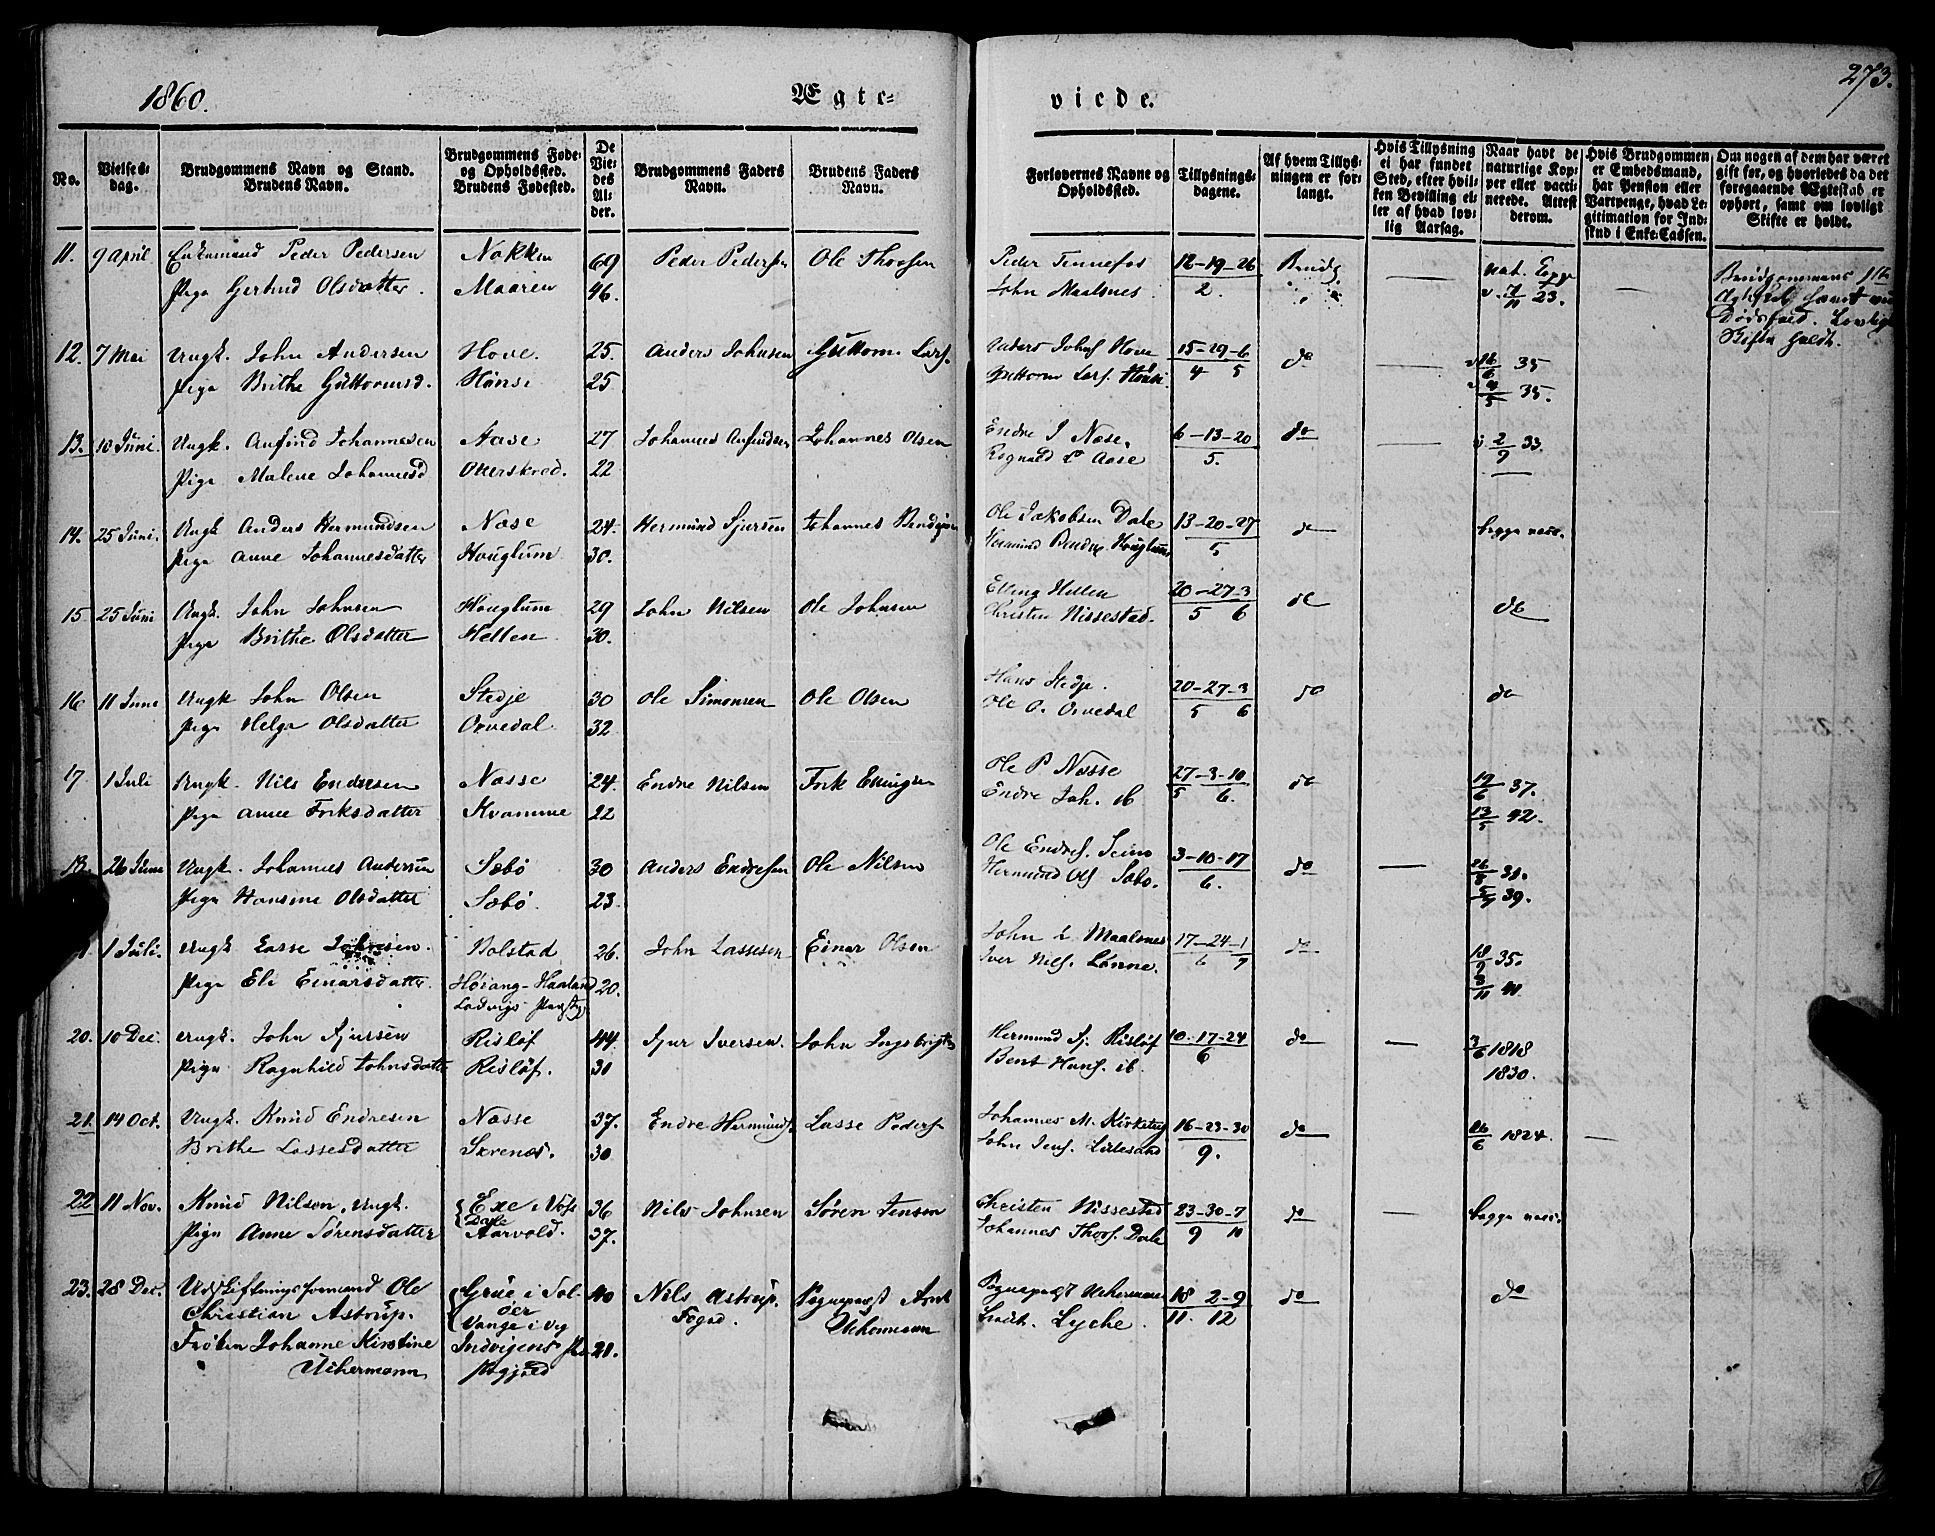 1860.
Ægte=
viede.
273.
No.
Vielses-dag.
Brudgommens Navn og Stand.
Brudens Navn.
Brudgommens Føde- og Opholdssted.
Brudens Fødested.
De Vie-des Al-der.
Brudgommens Faders Navn.
Brudens Faders Navn.
Forlovernes Navne og Opholdssted.
Tillysnings-dagene.
Af hvem Tillys-ningen er for-langt.
Hvis Tillysning ei har fundet Sted, efter hvil-ken Bevilling el-ler af hvad lov-lig Aarsag.
Naar havt de naturlige Kop-per eller vacci-nerede. Attest derom.
Hvis Brudgommen er Embedsmand, har Pension eller Vartpenge, hvad Le-gitimation for Ind-skud i Enke-Cassen.
Om nogen af dem har været gift før, og hvorledes da det foregaaende Ægteskab er ophørt, samt om lovligt Skifte er holdt.
11. 9 April Enkemand Peder Pedersen Nokken 69 Peder Pedersen Ole Thorsen Peder Tennefos 12-19-26 Brudg.
Pige Gertrud Olsdatter. Maaren 46. John Maalsnes. 2. v. 7/11 23.
Brudgommens 1ste
Dødsfald. Lovligt
Skifte holdt.
12. 7 Mai Ungk. John Andersen Hove. 25. Anders Johnsen Guttorm Lars. Anders Johns. Hove 15-29-6 do 16/6 35
Pige Brithe Guttormsd. Hønsi 25 Guttorm Lars. Hønsi 4 5 v 4/5 35.
13. 10 Juni. Ungk. Anfind Johannesen Nase 27 Johannes Anfindsen Johannes Olsen Endre J Nase. 6-13-20 do v. 2/9 33.
Pige Malene Johannesd Otterskred. 22 Rognald Aase 5.
14. 25 Juni. Ungk Anders Hermundsen Nase 24. Hermund Sjursen Johannes Ole Jakobsen Dale 13-20-27 do begge vacc.
Pige Anne Johannesdatter Houglum 30. Hermund Houglum 5
15. 25 Juni Ungk. John Johnsen Houglum 29 John Nilsen Ole Johnsen Elling Hellen 20-27-3 do do
Pige Brithe Olsdatter Hellen 30. Christen Nissestad. 5 6
16 11 Juni Ungk John Olsen Stedje 30 Ole Simonsen Ole Olsen Hans Stedje. 20-27-3 do do
Pige Helga Olsdatter Orvedal 32 Ole O. Orvedal 5 6
17 1 Juli Ungk. Nils Endresen Nasse 24. Endre Nilsen Frik Ellingsen Ole P Nasse 27-3-10 do 19/6 37.
Pige Anne Friksdatter Kvamme 22 Endre Joh. ib 5 6. 13/5 42.
18. 26 Juni Ungk. Johannes Andersen Søbø 30 Anders Endresen Ole Nilsen Ole Endres. 3-10-17 do 26/8 31.
Pige Hansine Olsdatter Søbø. 23. Hermund Ols. Søbø. 6. 39.
1 Juli. Ungk. Lasse Johnsen. Bolstad 26. John Lassesen Einar Olsen John L Maalsnes 17-24-1 do 18/9 35.
Pige Eli Einarsdatter. Høiang-Haaland 20. Iver Nils. Lønne. 6 7 3/11 41.
Ladvigs
20. 10 Dec. Ungk. John Sjursen Risløf 44. Sjur Iversen John Ingebrigts Hermund Sj. Risløf 10.-17-24 do 3/6 1818
Pige Ragnhild Johnsdatter Risløf. 31 Bent Hans. ib. 6 1830.
21. 14 Oct. Ungk. Knud Endresen Nasse 37. Endre Hermunds. Lasse Peders. Johannes M. Kirketeig 16-23-30 do 26/6 1824.
Brithe Lassesdatter Skrenes. 30 John Jens. Lillesand 9.
22 11 Nov. Knud Nilsen, Ungk. Exe i Vos 36 Nils Johnsen Søren Jensen Christen Nissestad 23-30-7 do begge vacc.
Dale
Pige Anne Sørensdatter Aarvold. 37. Johannes Thors. Dale 9 10
23. 28 Dec. Udskiftningsformand Ole Grue i Sol- 40 Nils Astrup. Sognepræst Arnt Sognepræst Uchermann 18 2-9 do do
Christian Astrup. øer Foged. Uchermann Lyche. 11. 12
Vange i
Frøken Johanne Kirstine Indvigens 21.
Uchermann